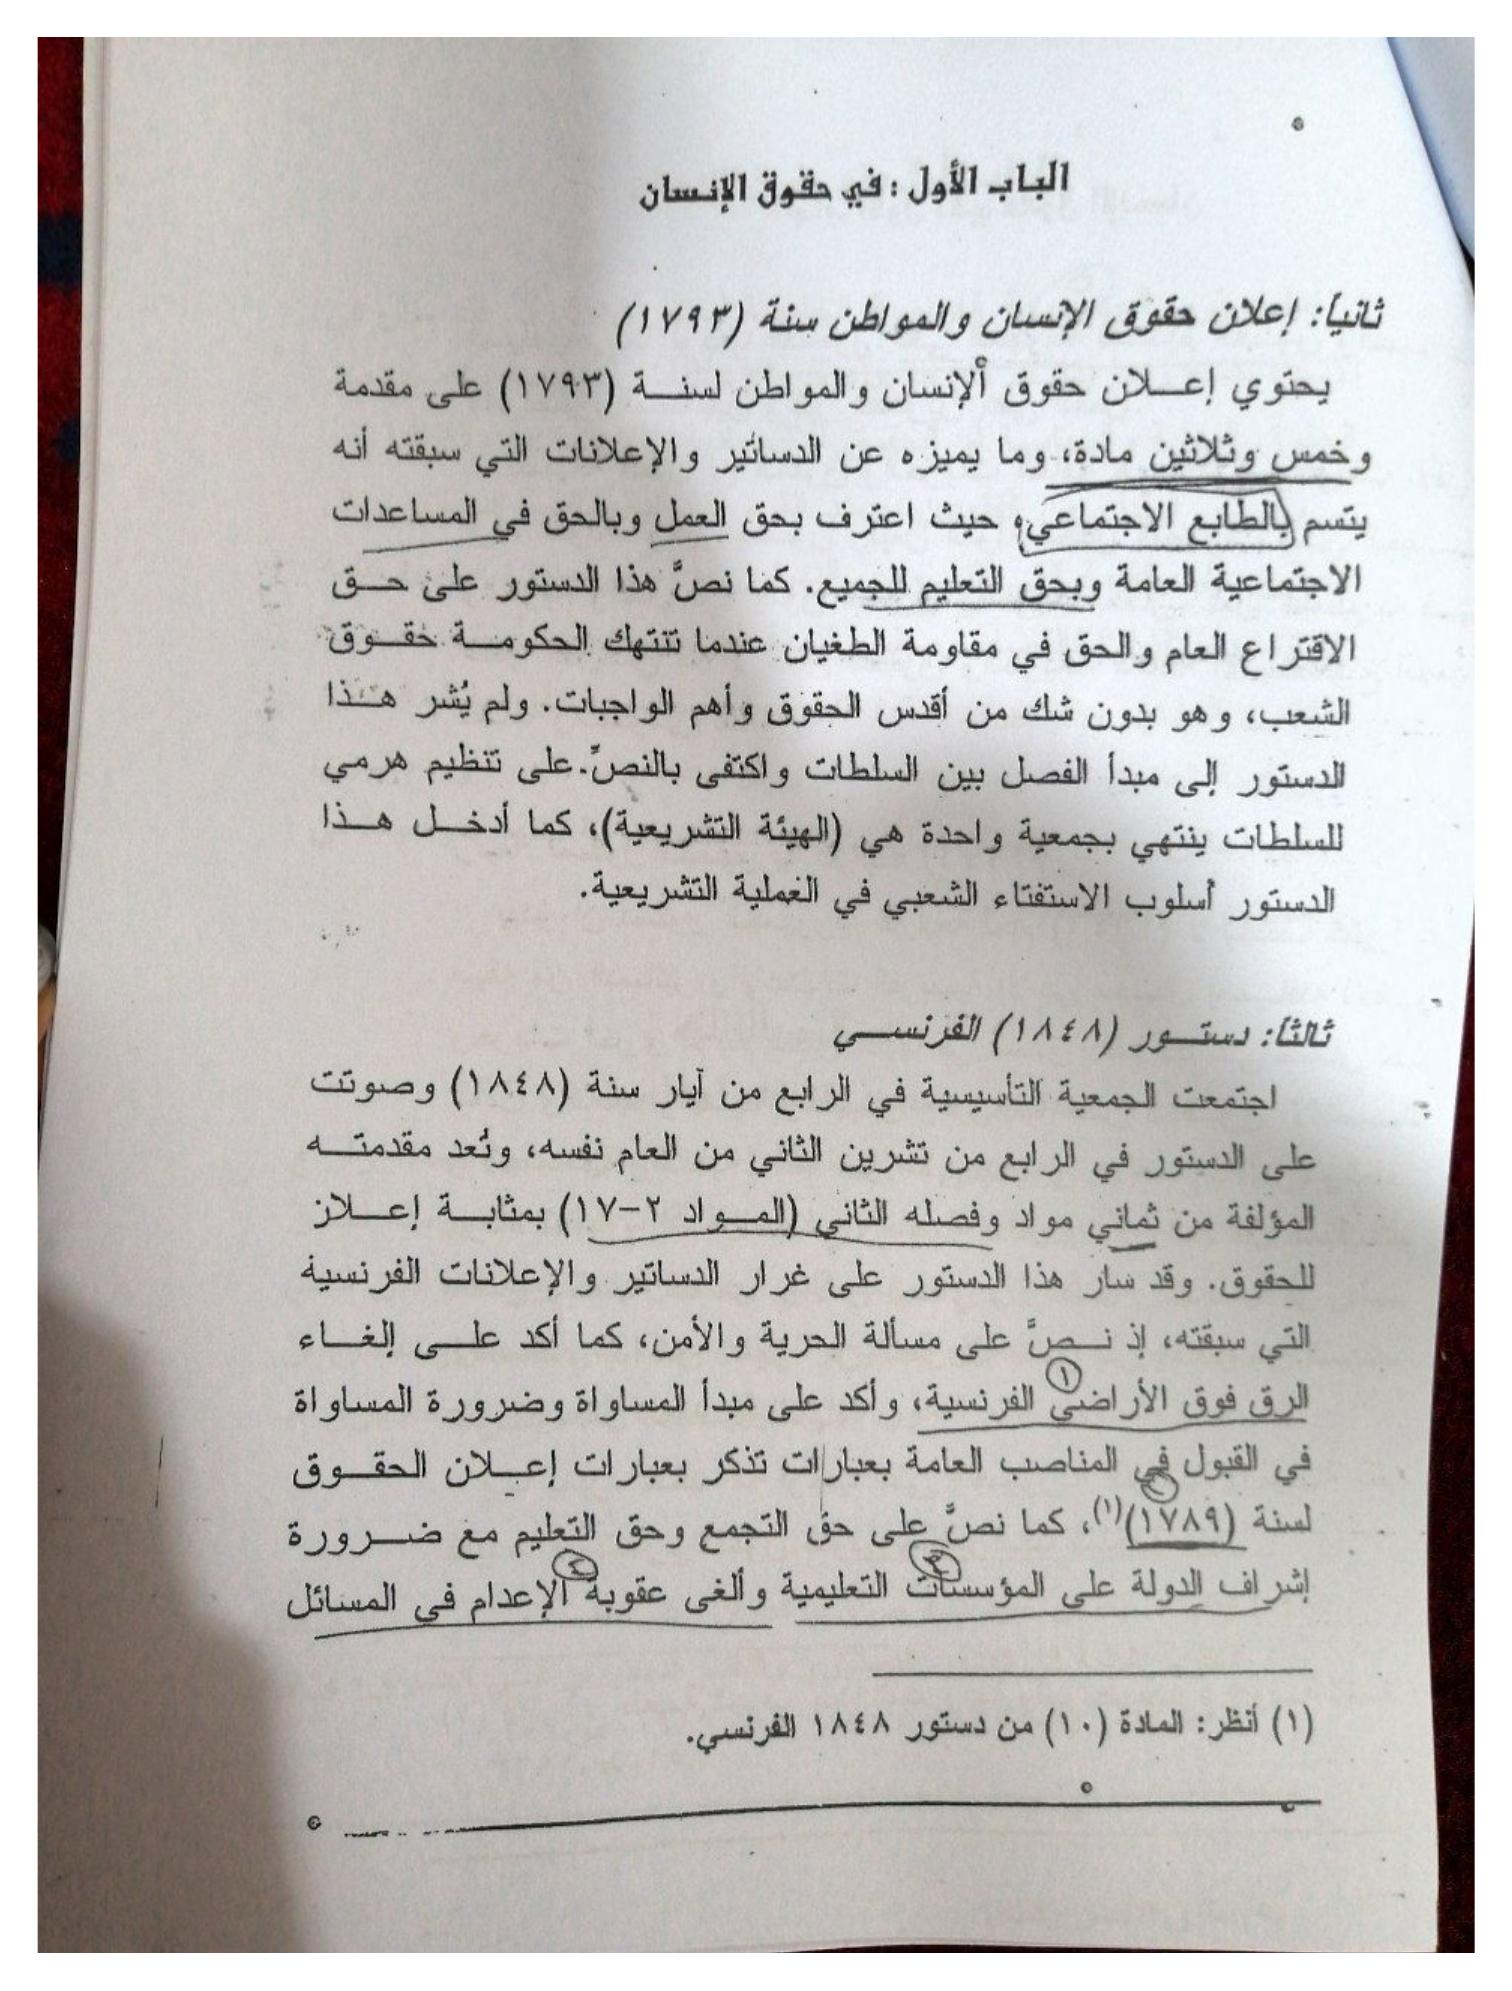 الباب الأول : في حقوق الإنسان
ثانياً: إعلان حقوق الإنسان والمواطن سنة (١٧٩٣)
يحتوي إعلان حقوق الإنسان والمواطن لسنة (١٧٩٣) على مقدمة
وخمس وثلاثين مادة، وما يميزه عن الدساتير والإعلانات التي سبقته أنه
يتسم بالطابع الاجتماعي، حيث اعترف بحق العمل وبالحق في المساعدات
الاجتماعية العامة وبحق التعليم للجميع. كما نصَّ هذا الدستور على حق
الاقتراع العام والحق في مقاومة الطغيان عندما تنتهك الحكومة حقوق
الشعب، وهو بدون شك من أقدس الحقوق وأهم الواجبات. ولم يُشر هذا
الدستور إلى مبدأ الفصل بين السلطات واكتفى بالنصِّ على تنظيم هرمي
للسلطات ينتهي بجمعية واحدة هي (الهيئة التشريعية)، كما أدخل هذا
الدستور أسلوب الاستفتاء الشعبي في العملية التشريعية.
ثالثاً: دستور (١٨٤٨) الفرنسي
اجتمعت الجمعية التأسيسية في الرابع من آيار سنة (١٨٤٨) وصوتت
على الدستور في الرابع من تشرين الثاني من العام نفسه، وتُعد مقدمته
المؤلفة من ثماني مواد وفصله الثاني (المواد ٢-١٧) بمثابة إعلان
للحقوق. وقد سار هذا الدستور على غرار الدساتير والإعلانات الفرنسية
التي سبقته، إذ نصَّ على مسألة الحرية والأمن، كما أكد على إلغاء
الرق فوق الأراضي الفرنسية، وأكد على مبدأ المساواة وضرورة المساواة
في القبول في المناصب العامة بعبارات تذكر بعبارات إعلان الحقوق
لسنة (١٧٨٩)(١)، كما نصَّ على حق التجمع وحق التعليم مع ضرورة
إشراف الدولة على المؤسسات التعليمية وألغى عقوبة الإعدام في المسائل
(١) أنظر: المادة (١٠) من دستور ١٨٤٨ الفرنسي.